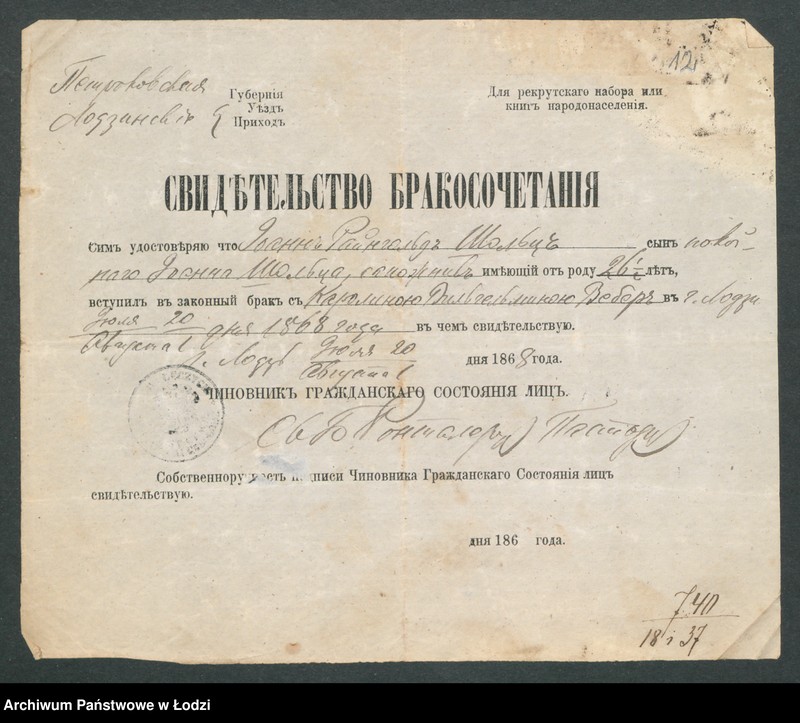 12
Петроковская
Лодзинскiй
Губернiя
Уѣздъ
Приходъ
Для рекрутскаго набора или
книгъ народонаселенiя.
СВИДѢТЕЛЬСТВО БРАКОСОЧЕТАНІЯ
Симъ удостовѣряю что Iоаннъ Райнгольдъ Шольцъ сынъ покой-
наго Iоанна Шольца, сапожникъ имѣющiй отъ роду 26 лѣтъ,
вступилъ въ законный бракъ съ Каролиною Вильгельминою Веберъ въ г. Лодзи
Iюля 20
Августа 1 дня 1868 года въ чемъ свидѣтельствую.
г. Лодзь Iюля 20
Августа 1 дня 1868 года.
ЧИНОВНИКЪ ГРАЖДАНСКАГО СОСТОЯНІЯ ЛИЦЪ.
Собственноручность подписи Чиновника Гражданскаго Состоянiя лицъ
свидѣтельствую.
дня 186 года.
740
18 i 37
Archiwum Państwowe w Łodzi